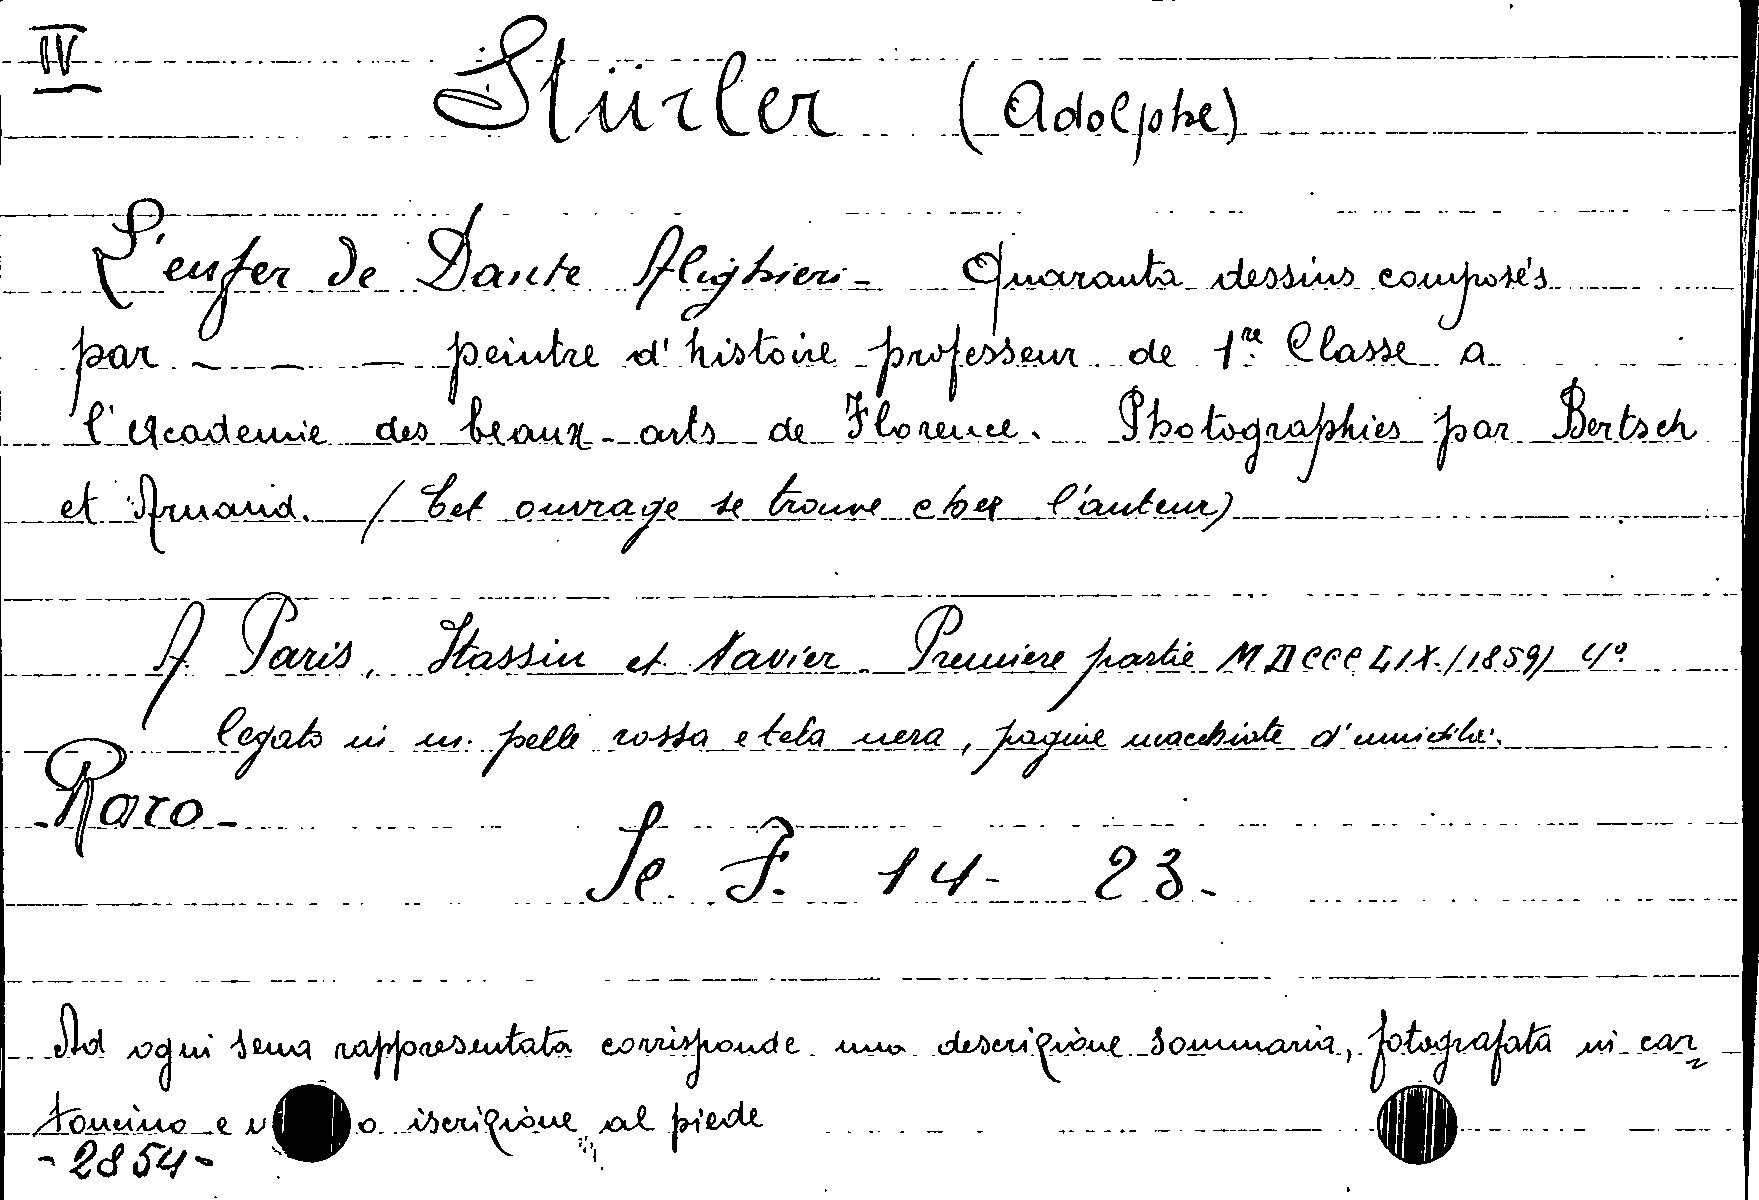 IV
Stürler (Adolphe)
L'enfer de Dante Alighieri - Quaranta dessins composés
par — — — peintre d'histoire professeur de 1re Classe a
l'Academie des beaux-arts de Florence. Photographies par Bertsch
et Arnaud. (Cet ouvrage se trouve chez l'auteur)
A Paris, Stassin et Xavier. Premiere partie MDCCCLIX (1859) 4º
legato in m. pelle rossa e tela nera, pagine macchiate d'umidità.
Raro -
Se. F. 14 - 23 -
Ad ogni sena rappresentata corrisponde una descrizione sommaria, fotografata in car=
toncino e o iscrizione al piede
- 2854 -